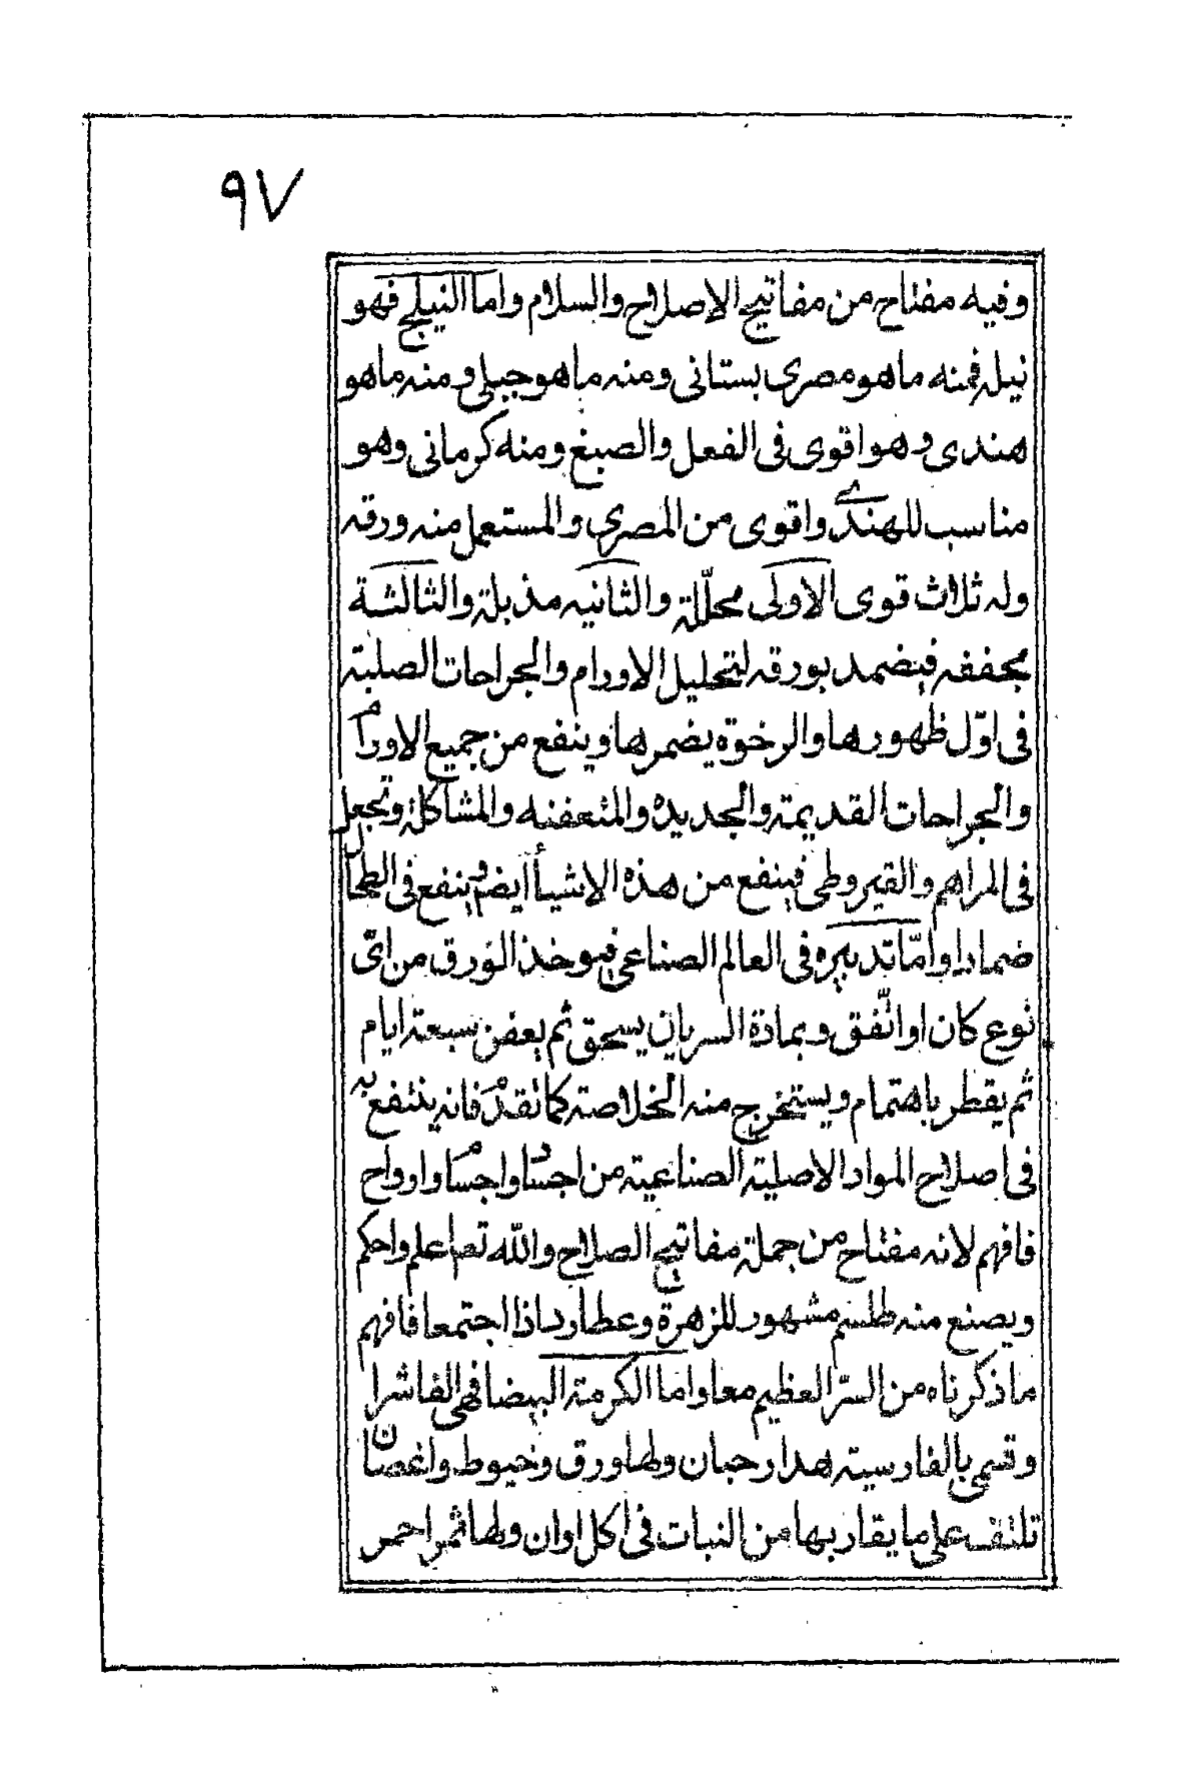 ٩٧
وفيه مفتاح من مفاتيح الاصلاح والسلام واما النيلج فهو
نيله فمنه ما هو مصرى بستانى ومنه ما هو جبلى ومنه ما هو
هندى وهو اقوى فى الفعل والصبغ ومنه كرمانى وهو
مناسب للهندى واقوى من المصرى والمستعمل منه ورقه
وله ثلاث قوى الاولى محلّلة والثانيه مذبلة والثالثة
مجففه فيضمد بورقه لتحليل الاورام والجراحات الصلبة
فى اوّل ظهورها والرخوة يضمرها وينفع من جميع الاورام
والجراحات القديمة والجديده والمتعفنه والمشاكلة وتجعل
فى المراهم والقيروطى فينفع من هذه الاشيأ ايضا وينفع فى الطحال
ضمادا وامّا تدبيره فى العالم الصناعى فيوخذ الورق من اىّ
نوع كان او اتّفق وبمادة السريان يسحق ثم يعفن سبعة ايام
ثم يقطر باهتمام ويستخرج منه الخلاصة كما تقدم فانه ينتفع به
فى اصلاح المواد الاصلية الصناعية من اجساد واجسام وارواح
فافهم لانه مفتاح من جملة مفاتيح الصلاح والله تعم اعلم واحكم
ويصنع منه طلسم مشهور للزهرة وعطارد اذا اجتمعا فافهم
ما ذكرناه من السرّ العظيم معا واما الكرمة البيضا فهى الفاشرا
وتسمى بالفارسية هدار حبان ولها ورق وخيوط واغصان
تلتف على ما يقاربها من النبات فى اكل اوان ولها ثمر احمر